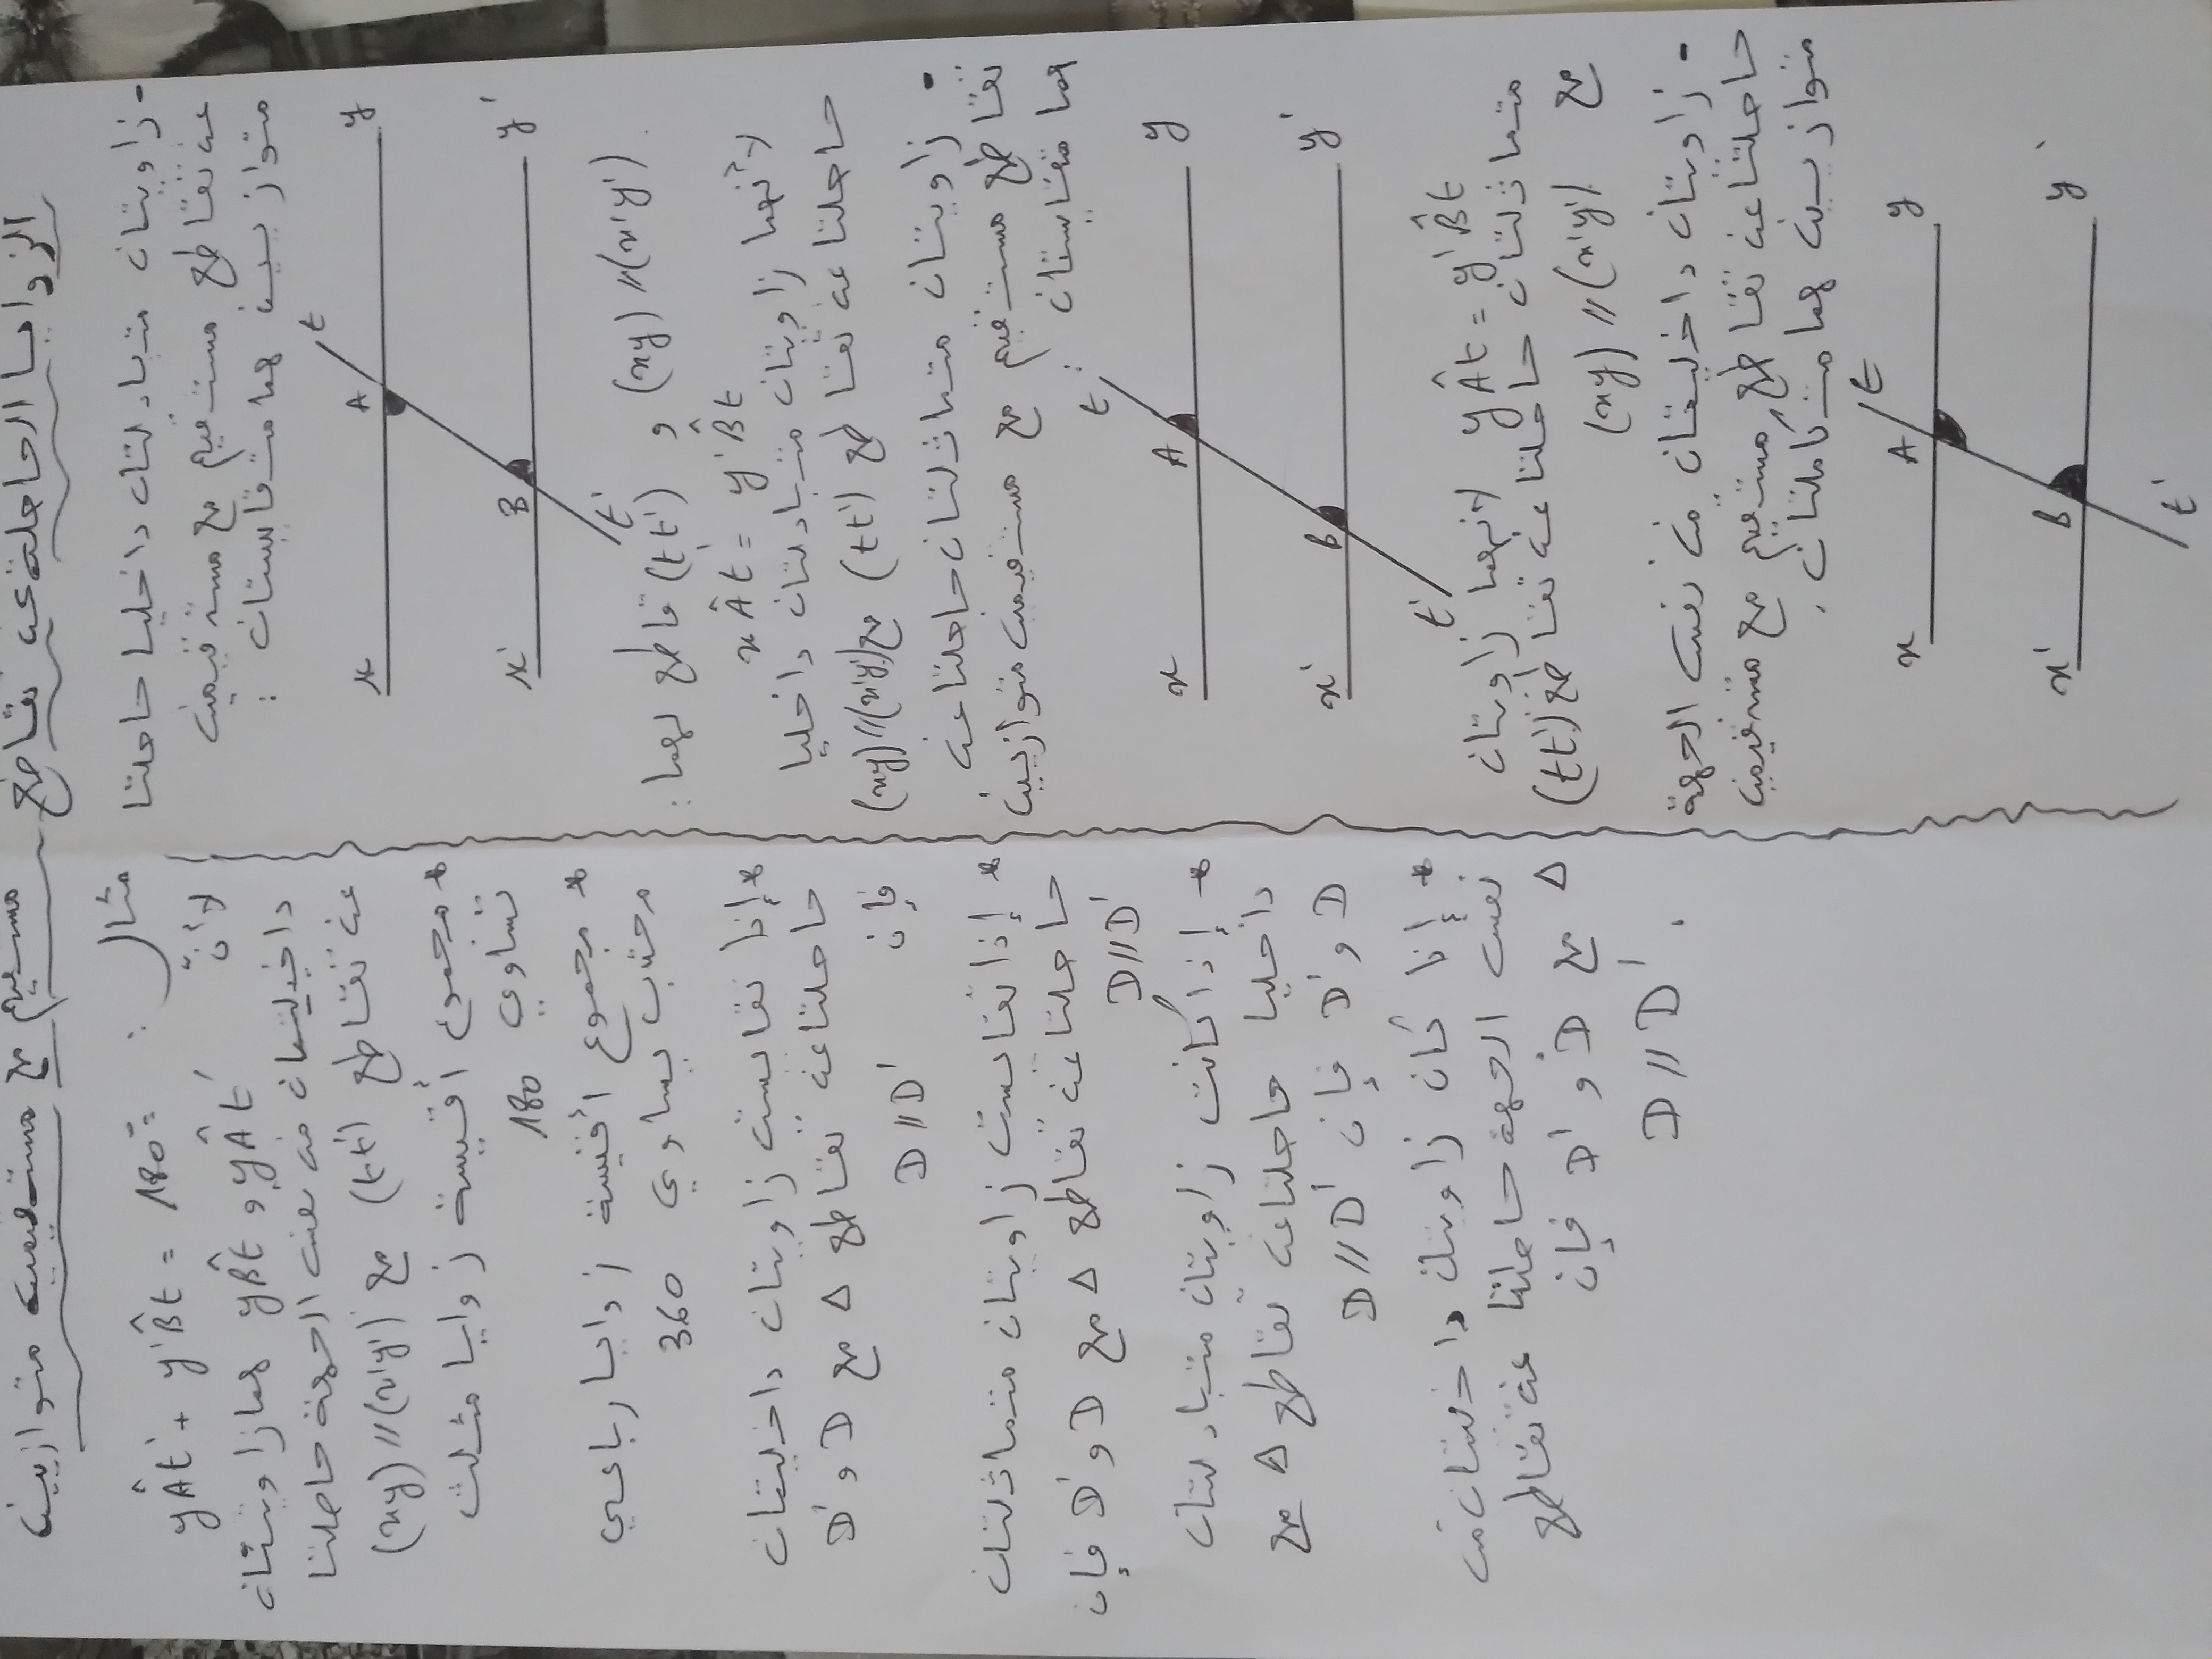 الزوايا الحاصلة عن تقاطع مستقيم مع مستقيمين متوازيين
- زاويتان متبادلتان داخليا حاصلتا
عن تقاطع مستقيم مع مستقيمين
متوازيين هما متقايستان :
t
x A y
x' B y'
t'
(xy) // (x'y') و (tt') قاطع لهما :
xÂt' = y'B̂t
لأنهما زاويتان متبادلتان داخليا
حاصلتا عن تقاطع (tt') مع (x'y')//(xy)
- زاويتان متماثلتان حاصلتا عن
تقاطع مستقيم مع مستقيمين متوازيين
هما متقايستان :
t
x A y
x' B y'
t'
yÂt = y'B̂t لأنهما زاويتان
متماثلتان حاصلتا عن تقاطع (tt')
مع (xy) // (x'y')
- زاويتان داخليتان من نفس الجهة
حاصلتا عن تقاطع مستقيم مع مستقيمين
متوازيين هما متكاملتان .
t
x A y
x' B y'
t'
مثال :
yÂt' + y'B̂t = 180°
لأن yÂt' و yB̂t هما زاويتان
داخليتان من نفس الجهة حاصلتا
عن تقاطع (tt') مع (x'y') // (xy)
* مجموع أقيسة زوايا مثلث
تساوي 180
* مجموع اقيسة زوايا رباعي
محدب يساوي 360
* إذا تقايست زاويتان داخليتان
حاصلتا عن تقاطع Δ مع D و D'
فإن D // D'
* إذا تقايست زاويتان متماثلتان
حاصلتا عن تقاطع Δ مع D و D' فإن
D // D'
* إذا كانت زاويتان متبادلتان
داخليا حاصلتا عن تقاطع Δ مع
D و D' فإن D // D'
* إذا كان زاويتان داخلتان من
نفس الجهة حاصلتا عن تقاطع
Δ مع D و D' فإن
D // D' .